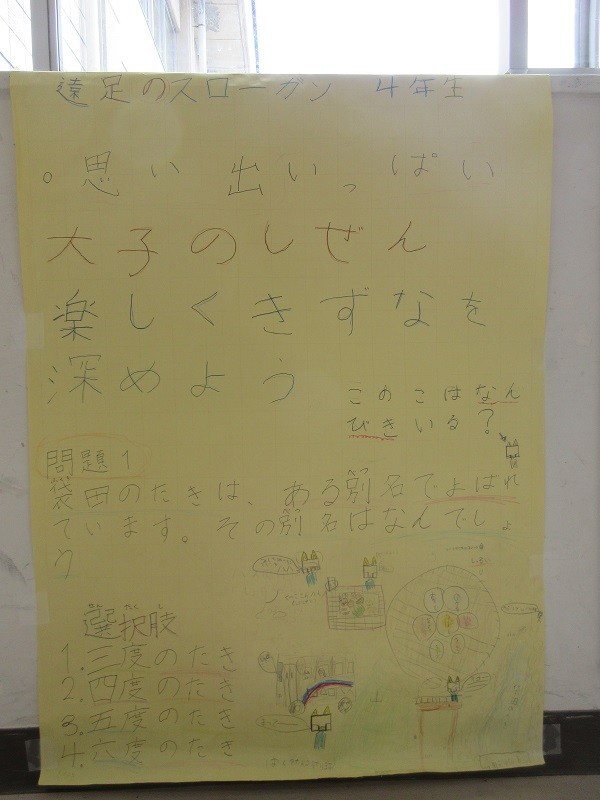 遠足のスローガン 4年生
。思い出いっぱい
大子のしぜん
楽しくきずなを
深めよう
このこはなん
びきいる?
問題1
袋田のたきは、ある別名でよばれ
ています。その別名はなんでしょ
う
選択肢
1.三度のたき
2.四度のたき
3.五度のたき
4.六度のたき